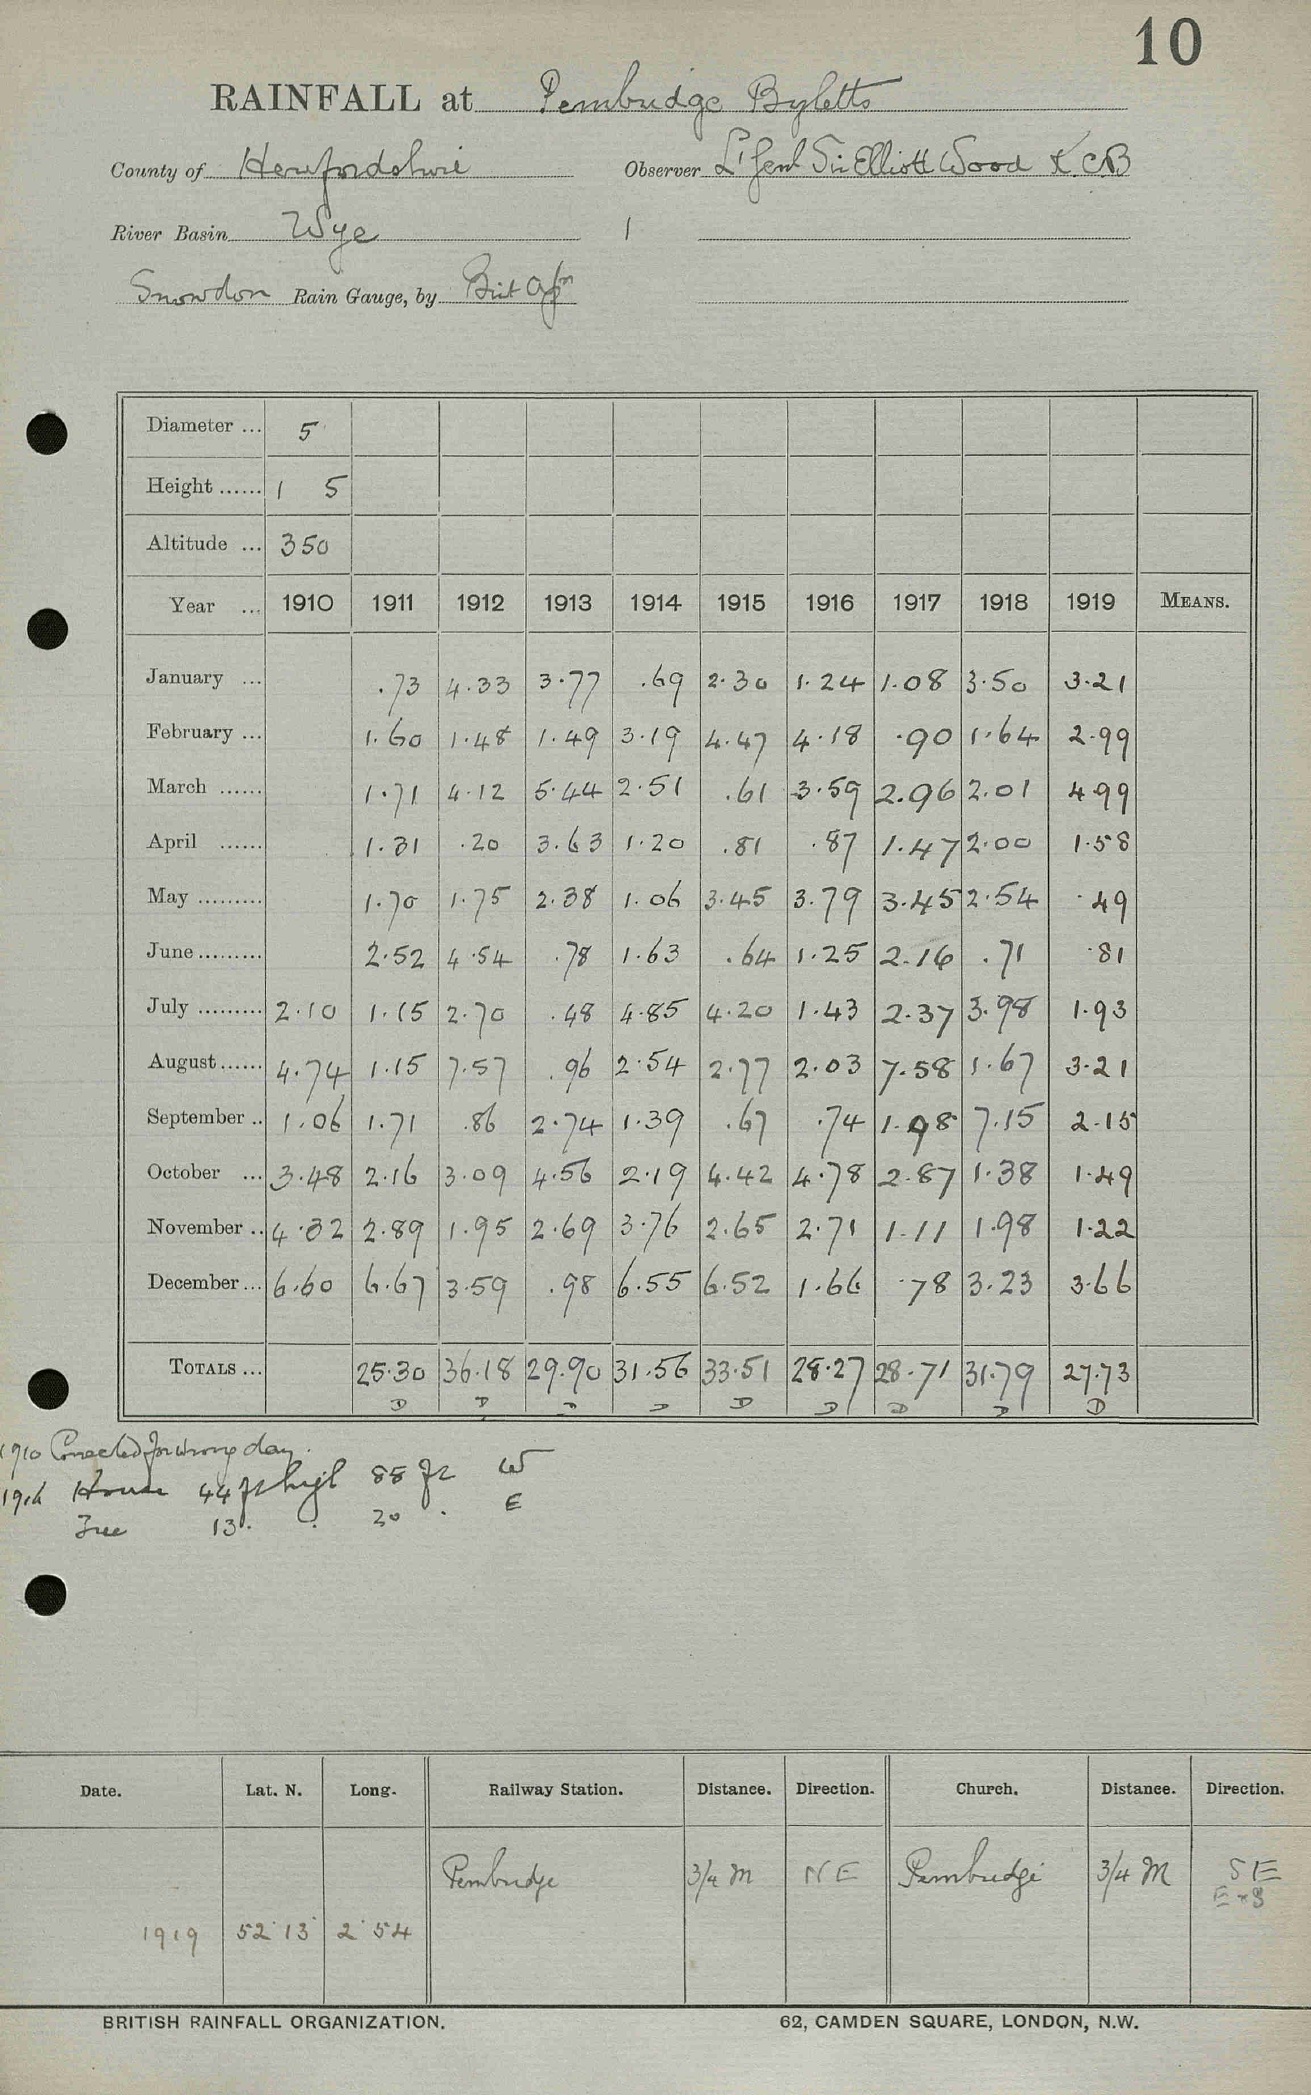 10
RAINFALL at Pembridge Byletts
County of Herefordshire Observer Lt Genl Sir Elliott Wood K.C.B
River Basin Wye 1
Snowdon Rain Gauge, by Brit Assn
Diameter ... 5
Height ...... 1 5
Altitude ... 350
Year ... 1910 1911 1912 1913 1914 1915 1916 1917 1918 1919 MEANS.
January ... .73 4.33 3.77 .69 2.30 1.24 1.08 3.50 3.21
February ... 1.60 1.48 1.49 3.19 4.47 4.18 .90 1.64 2.99
March ...... 1.71 4.12 5.44 2.51 .61 3.59 2.96 2.01 4.99
April ...... 1.31 .20 3.63 1.20 .81 .87 1.47 2.00 1.58
May ......... 1.70 1.75 2.38 1.06 3.45 3.79 3.45 2.54 .49
June ......... 2.52 4.54 .78 1.63 .64 1.25 2.16 .71 .81
July ......... 2.10 1.15 2.70 .48 4.85 4.20 1.43 2.37 3.98 1.93
August ...... 4.74 1.15 7.57 .96 2.54 2.77 2.03 7.58 1.67 3.21
September .. 1.06 1.71 .86 2.74 1.39 .67 .74 1.98 7.15 2.15
October ... 3.48 2.16 3.09 4.56 2.19 4.42 4.78 2.87 1.38 1.49
November .. 4.32 2.89 1.95 2.69 3.76 2.65 2.71 1.11 1.98 1.22
December ... 6.60 6.67 3.59 .98 6.55 6.52 1.66 .78 3.23 3.66
TOTALS ... 25.30 36.18 29.90 31.56 33.51 28.27 28.71 31.79 27.73
D D D D D D D D D
1910 Corrected for wrong day.
1916 House 44 ft high 88 ft W
Tree 13 . . 20 . E
Date. Lat. N. Long. Railway Station. Distance. Direction. Church. Distance. Direction.
Pembridge 3/4 M NE Pembridge 3/4 M SE
1919 52° 13' 2° 54
BRITISH RAINFALL ORGANIZATION. 62, CAMDEN SQUARE, LONDON, N.W.